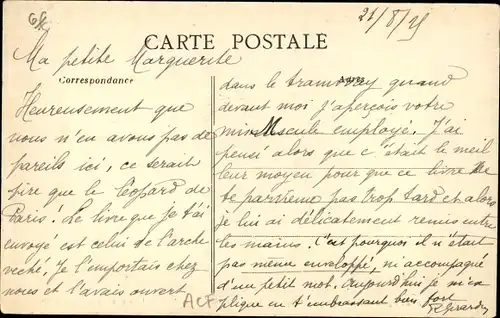 21/8/25
CARTE POSTALE
Ma petite Marguerite
Correspondance
Heureusement que
nous n'en avons pas de
pareils ici, ce serait
pire que le léopard de
Paris! Le livre que je t'ai
envoyé est celui de l'arche
vêché. Je l'emportais chez
nous et l'avais ouvert
dans le tramway quand
devant moi j'aperçois votre
employé. J'ai
pensé alors que c'était le meil
leur moyen pour que ce livre
te parvienne pas trop tard et alors
je lui ai délicatement remis entre
les mains. C'est pourquoi il n'était
pas même enveloppé, ni accompagné
d'un petit mot. Aujourd'hui je m'ex
plique en t'embrassant bien fort
R. Girardin
ACF